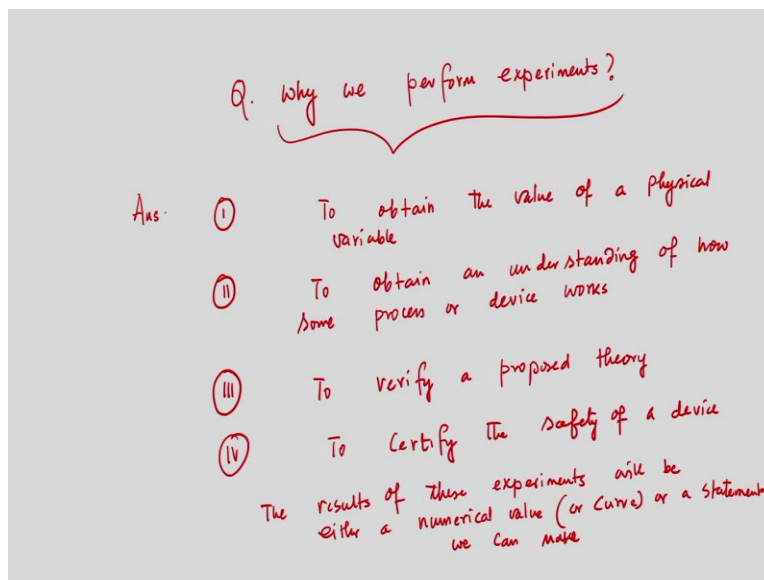 Q. Why we perform experiments?
Ans. (I) To obtain the value of a physical
variable
(II) To obtain an understanding of how
some process or device works
(III) To verify a proposed theory
(IV) To certify the safety of a device
The results of these experiments will be
either a numerical value (or curve) or a statement
we can make